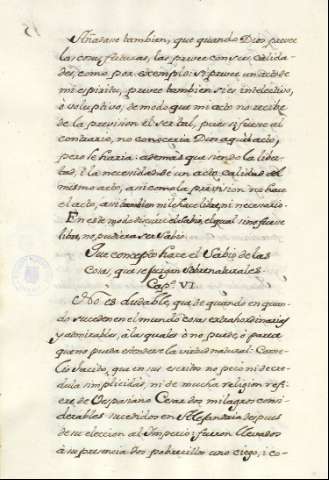 Añadase tambien, que quando Dios prevee
las cosas futuras, las prevee con sus calida-
des, como por exemplo: si prevee un acto de
mi espiritu, prevee tambien si es intelectivo,
ò volitivo, de modo que mi acto no recibe
de la prevision el ser tal, pues si fuese el
contrario, no conoceria Dios aquel acto,
pero le haria: ademas que siendo la liber-
tad, i la necesidad de un acto calidad del
mismo acto, asi como la prevision no hace
el acto, asi tambien ni le hace libre, ni necesario.
En este modo discurre el Sabio, el qual sino fuese
libre, no pudiera ser Sabio.
Que concepto hace el Sabio de las
cosas, que se fingen Sobrenaturales
Cap.º VI.
No es dudable, que de quando en quan-
do suceden en el mundo cosas extrahordinarias
y admirables, à las quales ò no puede, ò parece
que no pueda estenderse la virtud natural: Corne-
lio Tacito, que en sus escritos no peca ni de cre-
dula simplicidad, ni de mucha religion refie-
re de Vespasiano Cesar dos milagros consi-
derables sucedidos en Alexandria despues
de su eleccion al Imperio: fueron llevados
à su presencia dos pobrecillos uno ciego, i co-